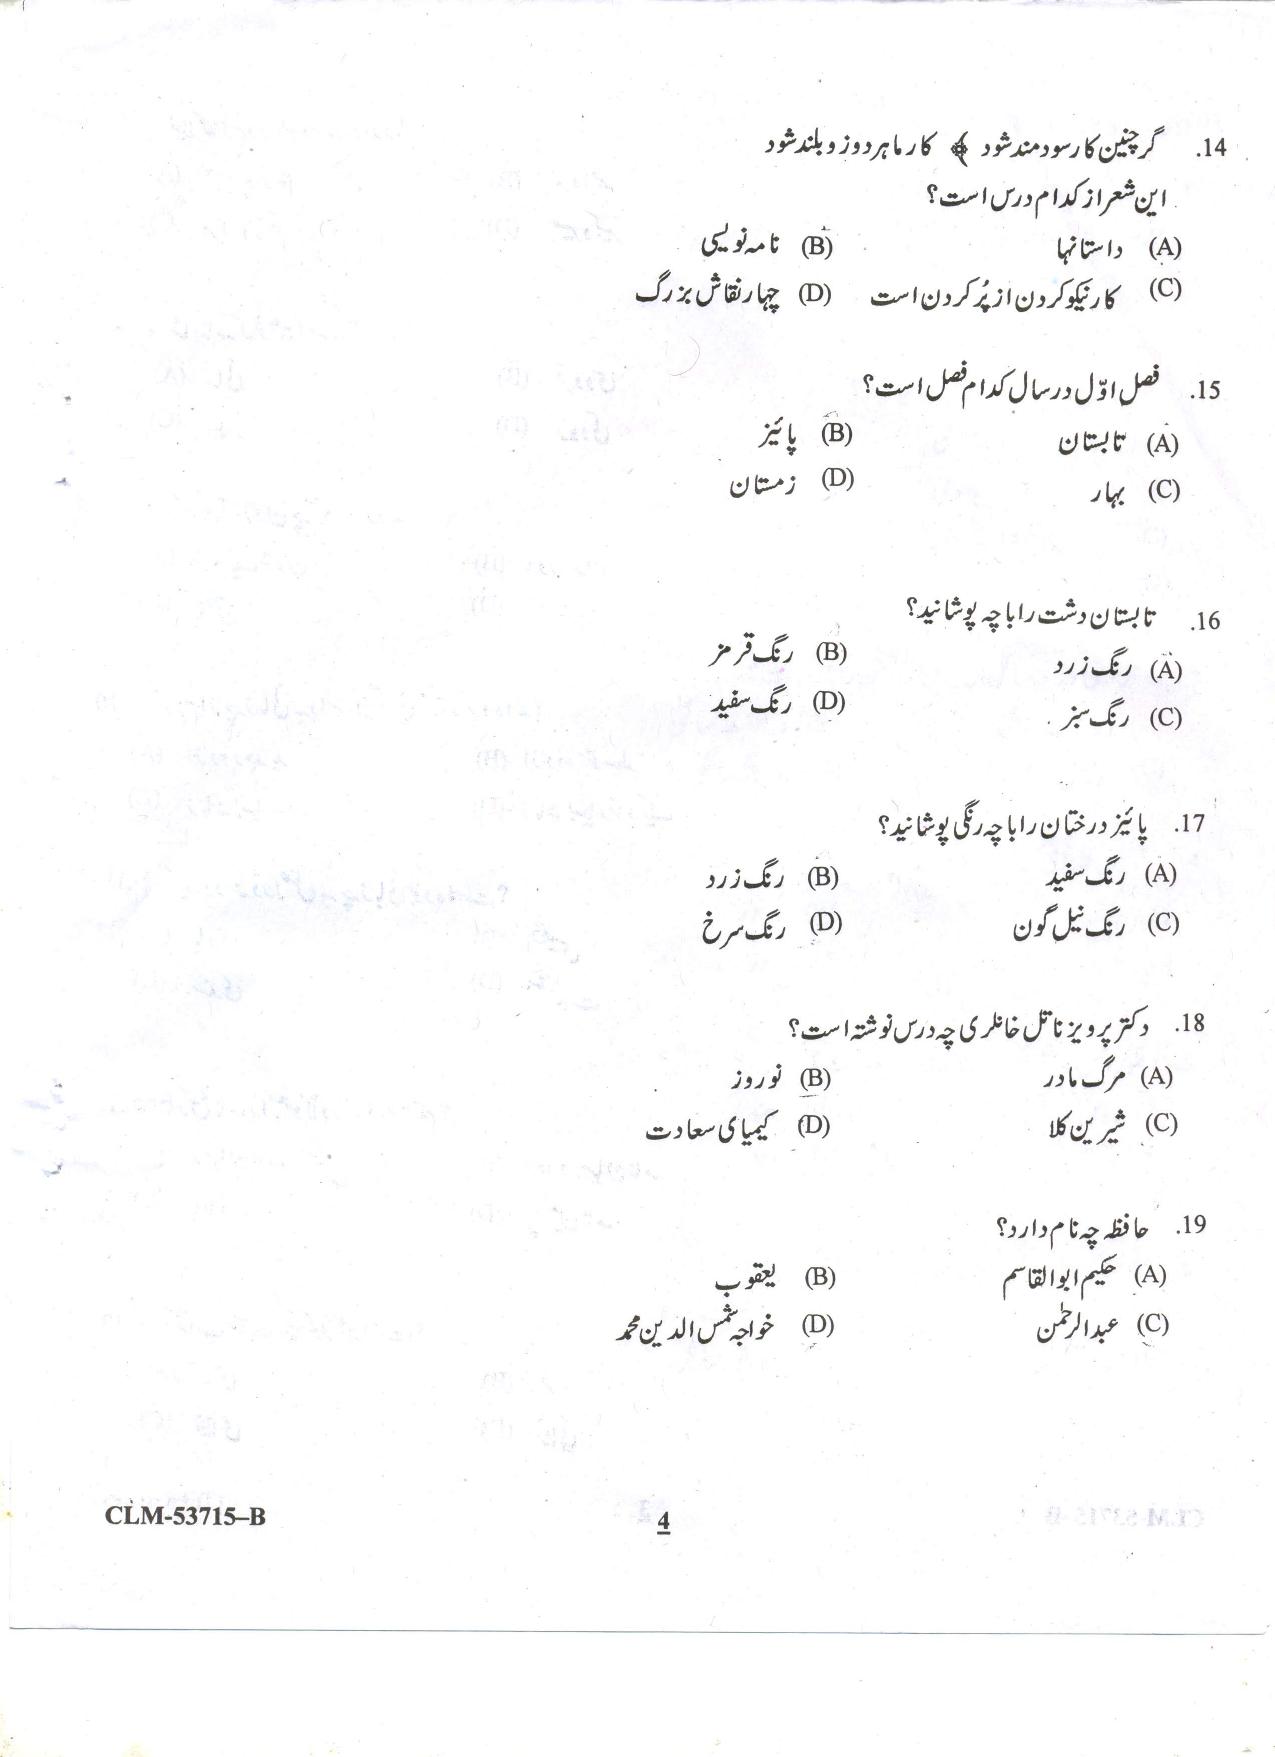 14. گر چنین کار سود مند شود ﴾ کار ما ہر دو زو بلند شود
این شعر از کدام درس است؟
(A) داستانہا (B) نامہ نویسی
(C) کار نیکو کردن از پُر کردن است (D) چہار نقاش بزرگ
15. فصل اوّل در سال کدام فصل است؟
(A) تابستان (B) پائیز
(C) بہار (D) زمستان
16. تابستان دشت را با چہ پوشانید؟
(A) رنگ زرد (B) رنگ قرمز
(C) رنگ سبز (D) رنگ سفید
17. پائیز درختان را با چہ رنگی پوشانید؟
(A) رنگ سفید (B) رنگ زرد
(C) رنگ نیل گون (D) رنگ سرخ
18. دکتر پرویز ناتل خانلری چہ درس نوشتہ است؟
(A) مرگ مادر (B) نوروز
(C) شیرین کلا (D) کیمیای سعادت
19. حافظہ چہ نام دارد؟
(A) حکیم ابوالقاسم (B) یعقوب
(C) عبدالرحمٰن (D) خواجہ شمس الدین محمد
CLM-53715–B 4